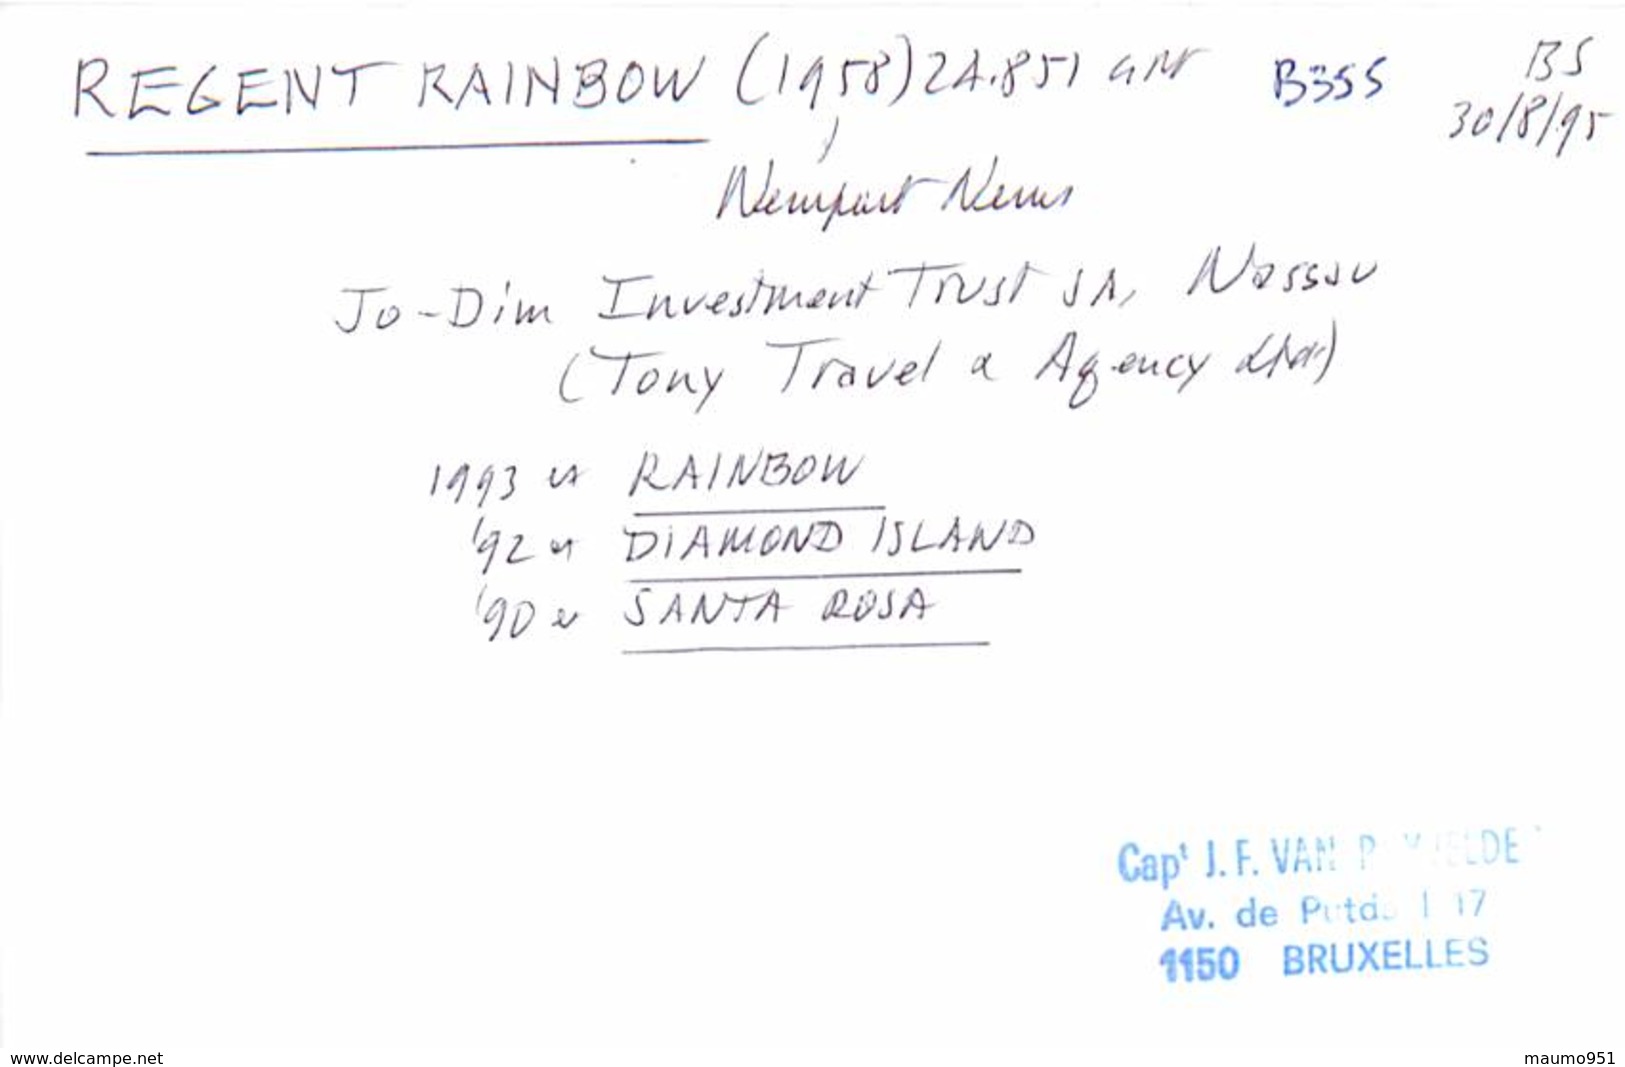 REGENT RAINBOW (1958) 24.851 GRT B355 BS
30/8/95
Newport News
Jo-Dim Investment Trust SA, Nassau
(Tony Travel & Agency Ltd.)
1993 ex RAINBOW
'92 ex DIAMOND ISLAND
'90 ex SANTA ROSA
Capt J.F. VAN
Av. de 17
1150 BRUXELLES
www.delcampe.net maumo951